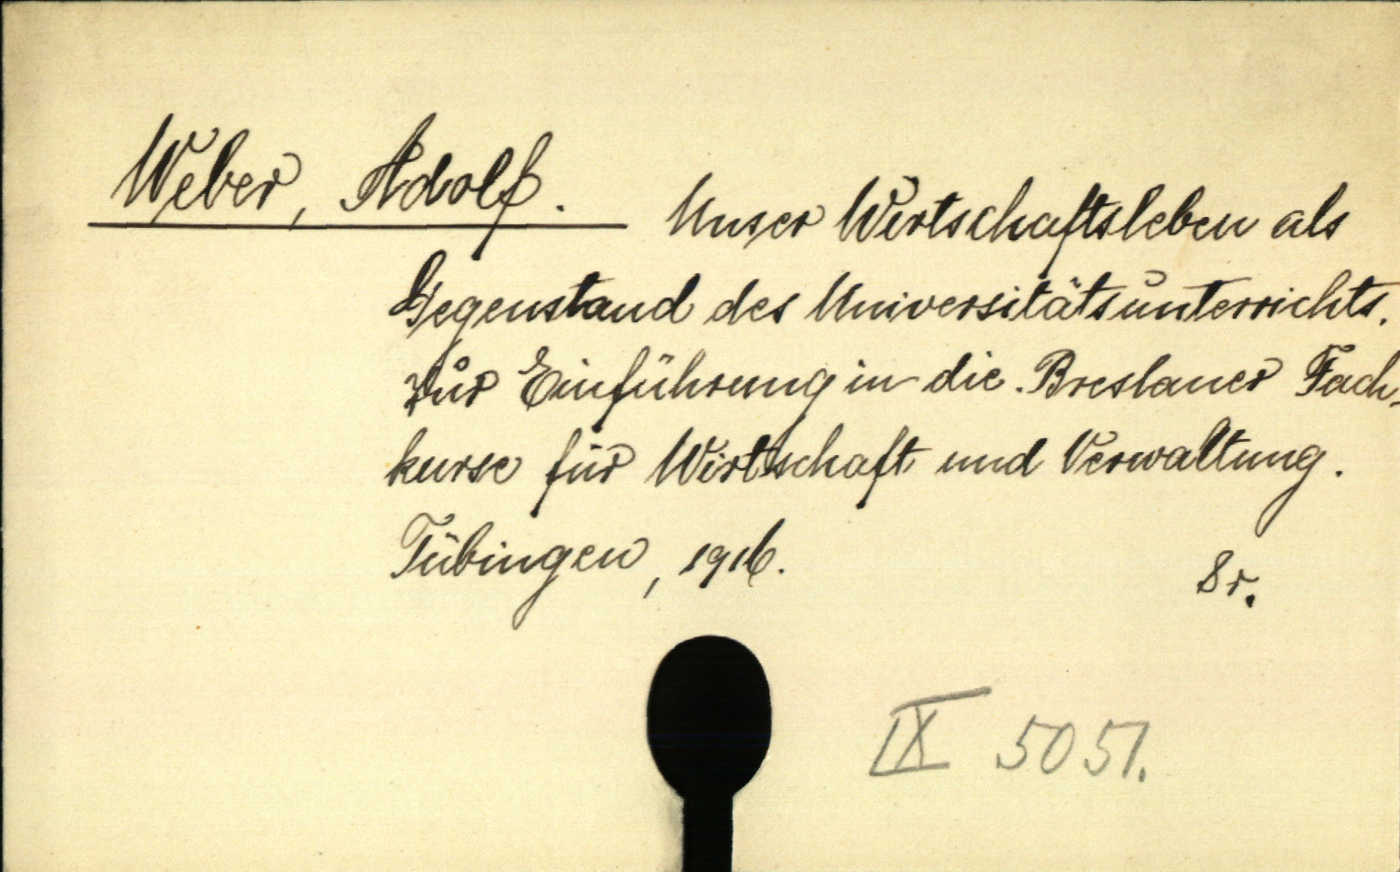 Weber, Adolf.
Unser Wirtschaftsleben als
Gegenstand des Universitätsunterrichts.
Zur Einführung in die Breslauer Fach-
kurse für Wirtschaft und Verwaltung.
Tübingen, 1916.
8r.
IX 5051.